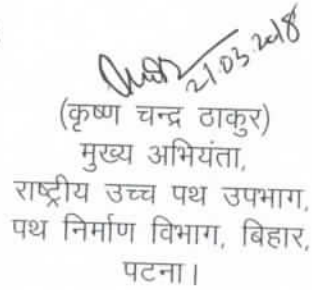 21.03.2018
(कृष्ण चन्द्र ठाकुर)
मुख्य अभियंता,
राष्ट्रीय उच्च पथ उपभाग,
पथ निर्माण विभाग, बिहार,
पटना।